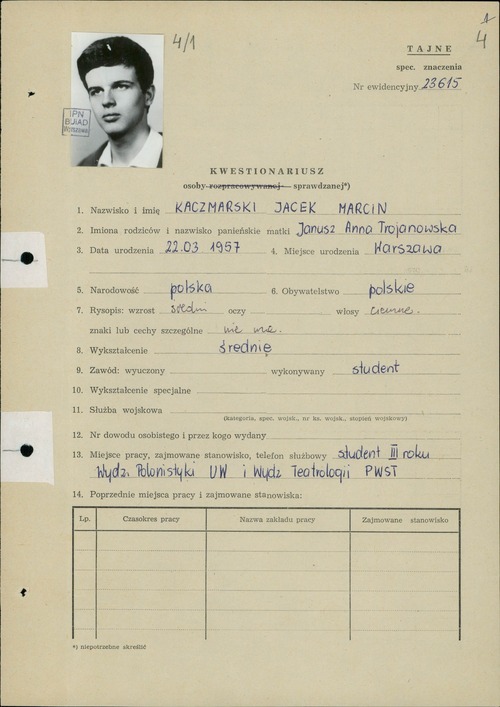 4/1
1
4
TAJNE
spec. znaczenia
Nr ewidencyjny 23615
IPN
BUiAD
Warszawa
KWESTIONARIUSZ
osoby rozpracowywanej sprawdzanej*)
1. Nazwisko i imię KACZMARSKI JACEK MARCIN
2. Imiona rodziców i nazwisko panieńskie matki Janusz Anna Trojanowska
3. Data urodzenia 22.03 1957 4. Miejsce urodzenia Warszawa
5. Narodowość polska 6. Obywatelstwo polskie
7. Rysopis: wzrost średni oczy włosy ciemne.
znaki lub cechy szczególne nie ma.
8. Wykształcenie średnie
9. Zawód: wyuczony wykonywany student
10. Wykształcenie specjalne
11. Służba wojskowa
(kategoria, spec. wojsk., nr ks. wojsk., stopień wojskowy)
12. Nr dowodu osobistego i przez kogo wydany
13. Miejsce pracy, zajmowane stanowisko, telefon służbowy student III roku
Wydz. Polonistyki UW i Wydz Teatrologii PWST
14. Poprzednie miejsca pracy i zajmowane stanowiska:
Lp. Czasokres pracy Nazwa zakładu pracy Zajmowane stanowisko
*) niepotrzebne skreślić